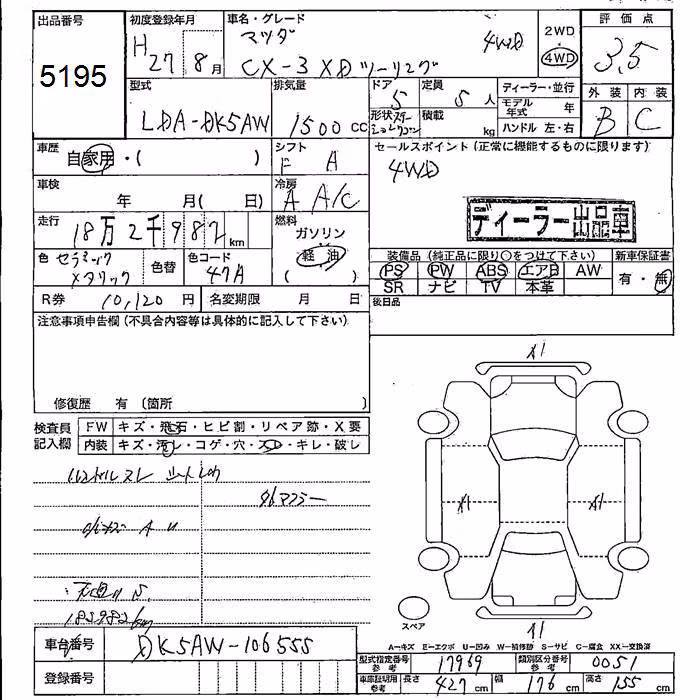 出品番号 5195
初度登録年月 H27年8月
車名・グレード マツダ CX-3 XDツーリング 4WD
2WD 4WD
評価点 3.5
外装 B 内装 C
型式 LDA-DK5AW
排気量 1500cc
ドア 5
形状
定員 5人
積載 kg
ディーラー・並行
モデル年式 年
ハンドル 左・右
車歴 自家用・( )
シフト F A
セールスポイント(正常に機能するものに限ります)
4WD
ディーラー出品車
車検 年 月( 日)
冷房 A A/C
走行 18万2千982km
燃料 ガソリン 軽油 ( )
色 セラミックメタリック 色替 色コード 47A
装備品(純正品に限り〇をつけて下さい)
PS PW ABS エアB AW
SR ナビ TV 本革
新車保証書 有・無
R券 10,120円 名変期限 月 日
後日品
注意事項申告欄(不具合内容等は具体的に記入して下さい)
修復歴 有 〔箇所 〕
検査員記入欄
FW キズ・飛石・ヒビ割・リペア跡・X要
内装 キズ・汚レ・コゲ・穴・スレ・キレ・破し
ハンドルスレ シート
タイコマフラー
A1
A1 A1
A1
スペア
A=キズ E=エクボ U=凹み W=補修跡 S=サビ C=腐食 XX=交換済
車台番号 DK5AW-106555
登録番号
型式指定番号参考 17969 類別区分番号参考 0051
車庫証明用参考 長さ 427cm 幅 176cm 高さ 155cm